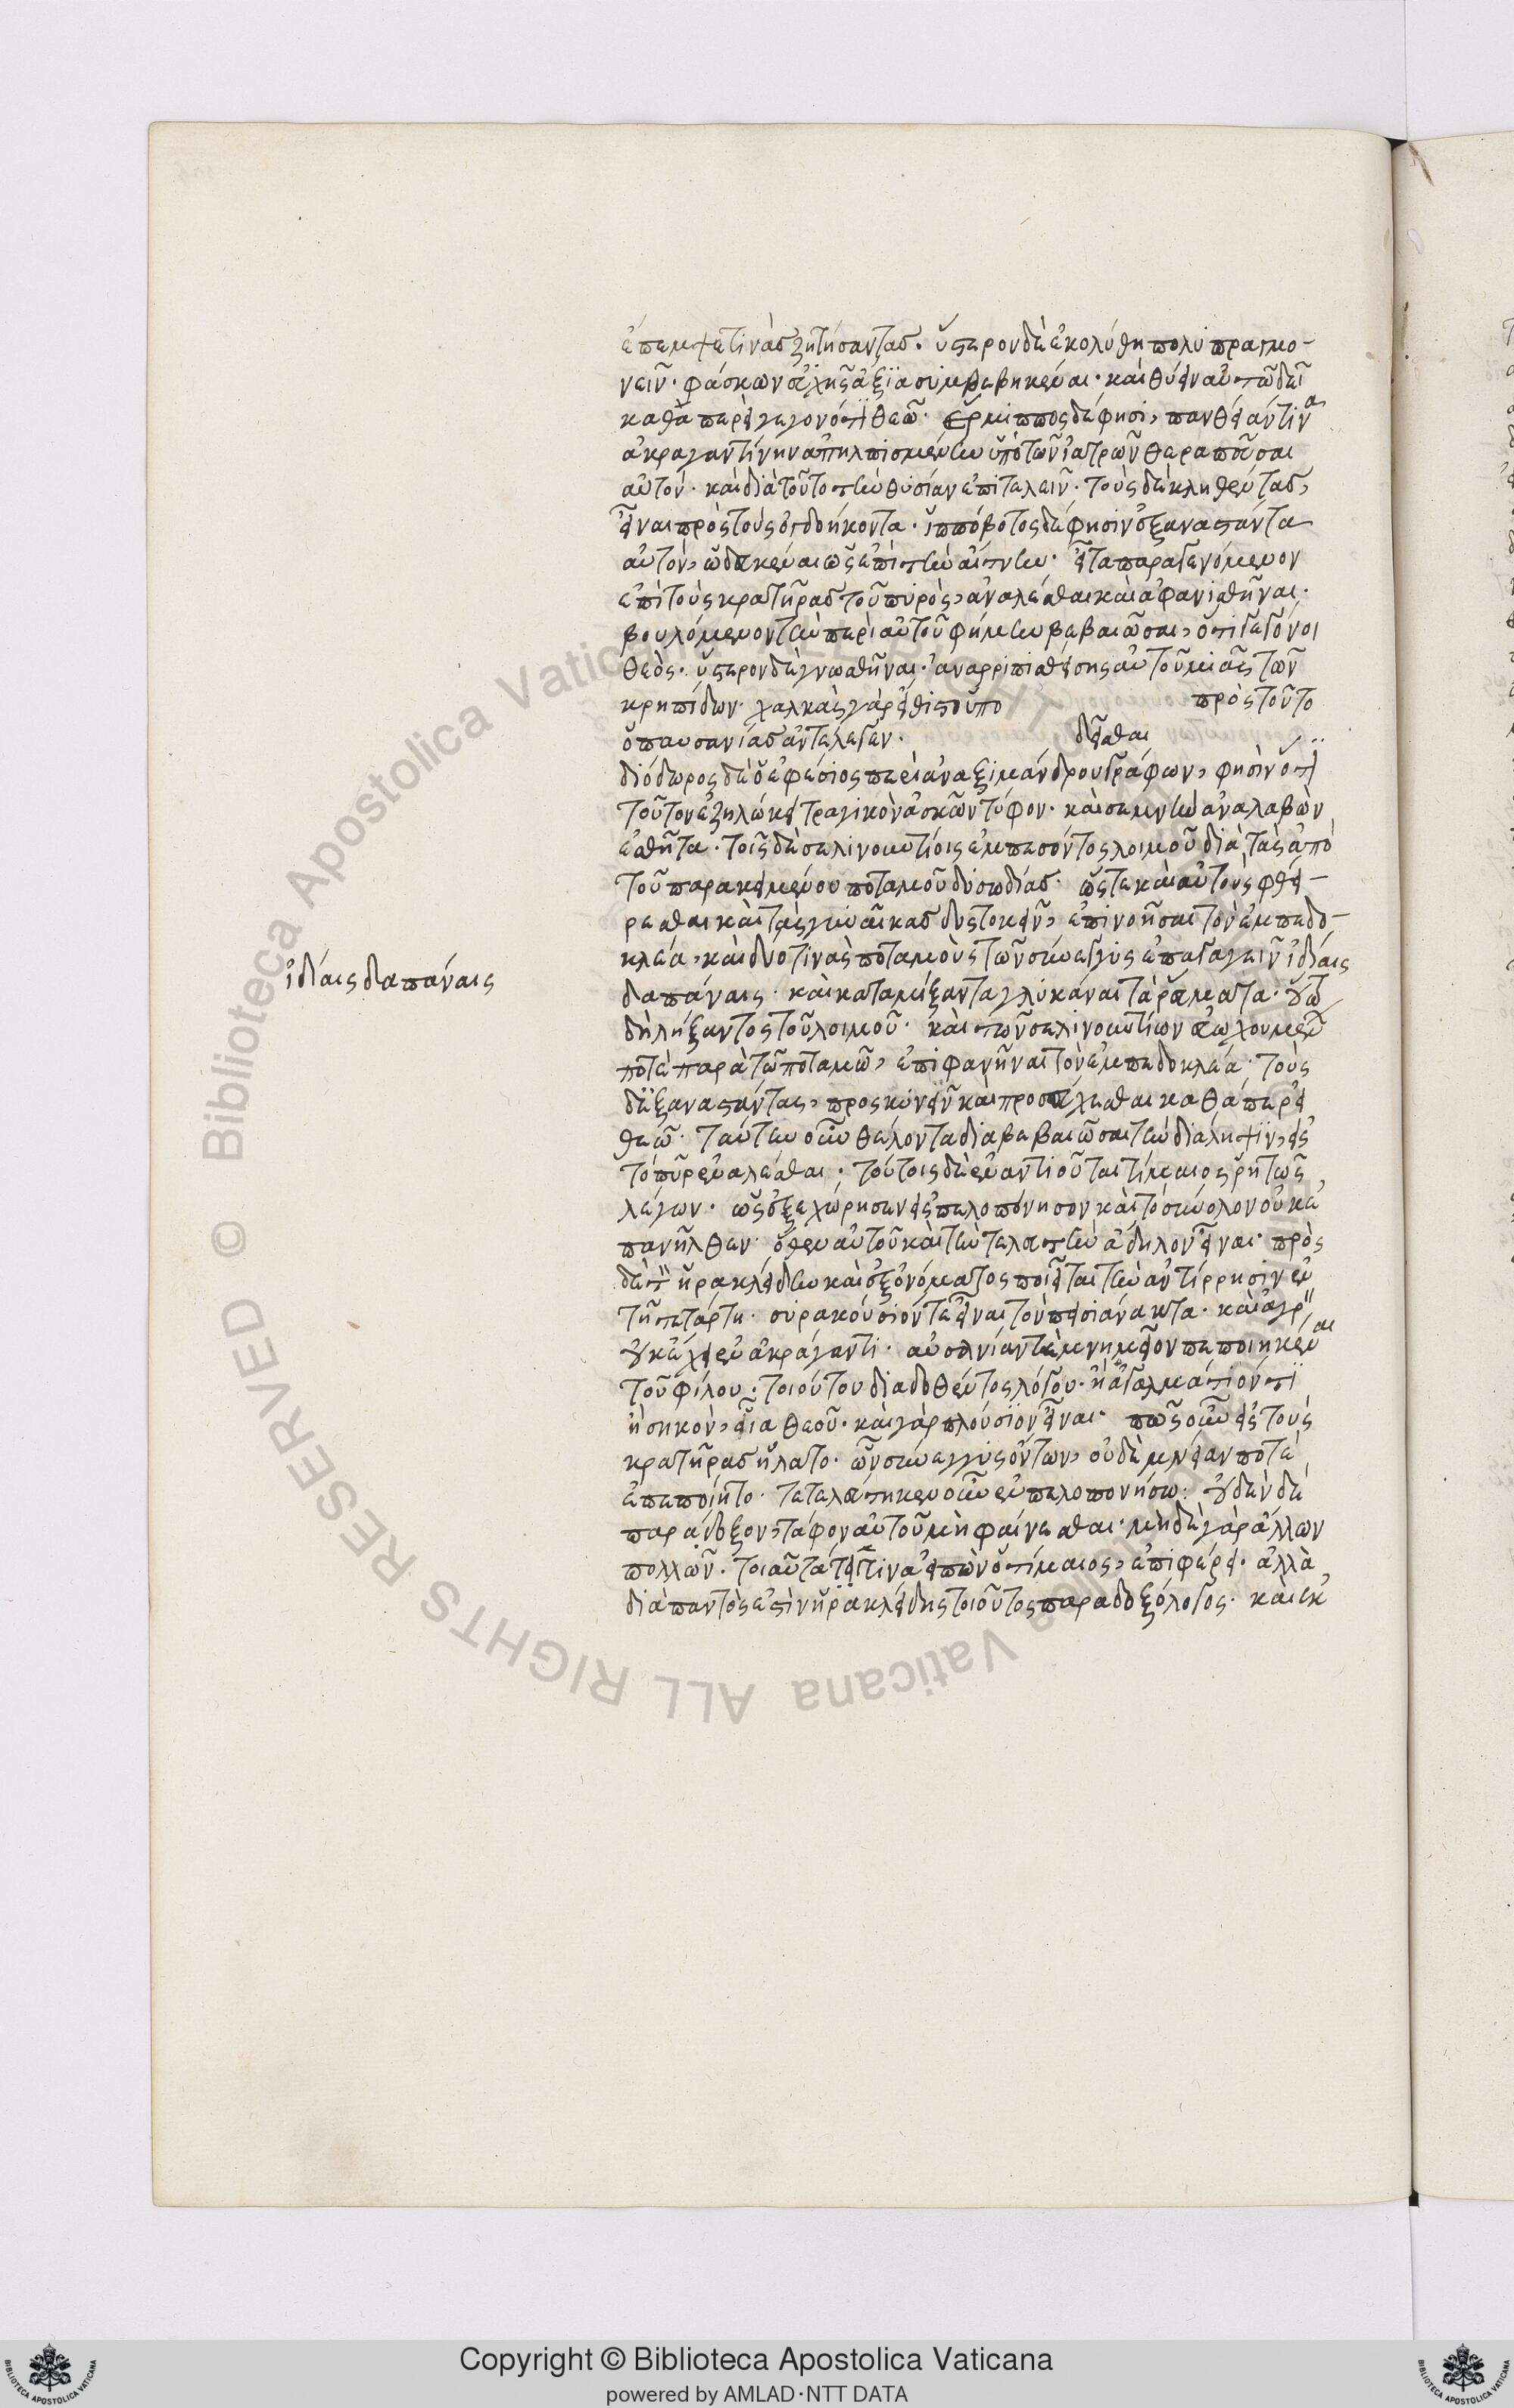 ἔπεμψε τινὰς ζητήσαντας· ὕστερον δὲ ἐκολύθη πολυπραγμο-
νεῖν· φάσκων εὐχῆς ἄξια συμβεβηκέναι· καὶ θύειν αὐτῶ δεῖ
καθὰ περεὶ γεγονότι θεῶ· Ἕρμιππος δέ φησι, πανθεὶαν τινα
ἀκραγαντίνην ἀπηλπισμένην ὑπὸ τῶν ἰατρῶν θεραπεῦσαι
αὐτὸν· καὶ διὰ τοῦτο τὴν θυσίαν ἐπιτελεῖν· τοὺς δὲ κληθέντας,
εἶναι πρὸς τοὺς ὀγδοήκοντα· ἱππόβοτος δέ φησιν ἐξαναστάντα
αὐτὸν, ὡδευκέναι ὡς ἐπὶ τὴν αἴτνην· εἶτα παραγενόμενον
ἐπὶ τοὺς κρατῆρας τοῦ πυρὸς, ἀναλέσθαι καὶ ἀφανισθῆναι·
βουλόμενον τὴν περὶ αὐτοῦ φήμην βεβαιῶσαι, ὅτι γεγόνοι
θεὸς· ὕστερον δὲ γνωσθῆναι· ἀναρριπισθείσης αὐτοῦ μιᾶς τῶν
κρηπίδων· χαλκᾶς γὰρ εἴθιστο ὑπο πρὸς τοῦτο
ὁ παυσανίας ἀντέλεγεν· δεῖσθαι
διόδωρος δὲ ὁ ἐφέσιος περὶ ἀναξιμάνδρου γράφων, φησὶν ὅτι
τοῦτον ἐζηλώκει τραγικὸν ἀσκῶν τύφον· καὶ σεμνὴν ἀναλαβὼν
ἐσθῆτα· τοῖς δὲ σελινουντίοις ἐμπεσόντος λοιμοῦ διὰ τὰς ἀπὸ
τοῦ παρακειμένου ποταμοῦ δυσωδίας· ὥστε καὶ αὐτοὺς φθεί-
ρεσθαι καὶ τὰς γυναῖκας δυστοκεῖν, ἐπινοῆσαι τὸν ἐμπεδο-
κλέα, καὶ δύο τινὰς ποταμοὺς τῶν σύνεγγυς ἐπαγαγεῖν ἰδίαις
ἰδίαις δαπάναις
δαπάναις· καὶ καταμείξαντα γλυκάναι τὰ ῥεύματα· οὕτω
δὴ λήξαντος τοῦ λοιμοῦ· καὶ τῶν σελινουντίων εὐωχουμένων
ποτὲ παρὰ τῶ ποταμῶ, ἐπιφανῆναι τὸν ἐμπεδοκλέα· τοὺς
δὲ ἐξαναστάντας, προσκυνεῖν καὶ προσεύχεσθαι καθάπερεὶ
θεῶ· ταύτην οὖν θέλοντα διαβεβαιῶσαι τὴν διάληψιν, εἰς
τὸ πῦρ ἐναλέσθαι· τούτοις δὲ ἐναντιοῦται τίμαιος ῥητῶς
λέγων· ὡς ἐξεχώρησεν εἰς πελοπόνησον καὶ τὸ σύνολον οὐκ ἐ
πανῆλθεν· ὅθεν αὐτοῦ καὶ τὴν τελευτὴν ἄδηλον εἶναι· πρὸς
δὲ τὸν ἡρακλείδην καὶ ἐξ ὀνόματος ποιεῖται τὴν ἀντίρρησιν ἐν
τῆ τετάρτη· συρακούσιόν τε εἶναι τὸν πεισιάνακτα· καὶ ἀγρὸν
οὐκ ἔχειν ἐν ἀκράγαντι· παυσανίαν τε μνημεῖον πεποιηκέναι
τοῦ φίλου· τοιούτου διαδοθέντος λόγου· ἢ ἀγαλμάτιόν τι
ἢ σηκὸν, οἷα θεοῦ· καὶ γὰρ πλούσιον εἶναι· πῶς οὖν εἰς τοὺς
κρατῆρας ἥλατο· ὧν σύνεγγυς ὄντων, οὐδὲ μνείαν ποτὲ
ἐπεποίητο· τετελεύτηκεν οὖν ἐν πελοπονήσω· οὐδὲν δὲ
παράδοξον, τάφον αὐτοῦ μὴ φαίνεσθαι· μηδὲ γὰρ ἄλλων
πολλῶν· τοιαῦτά τινα εἰπὼν ὁ τίμαιος, ἐπιφέρει· ἀλλὰ
διὰ παντὸς ἐστὶν ἡρακλείδης τοιοῦτος παραδοξόλογος· καὶ ἐκ
Copyright © Biblioteca Apostolica Vaticana
powered by AMLAD·NTT DATA